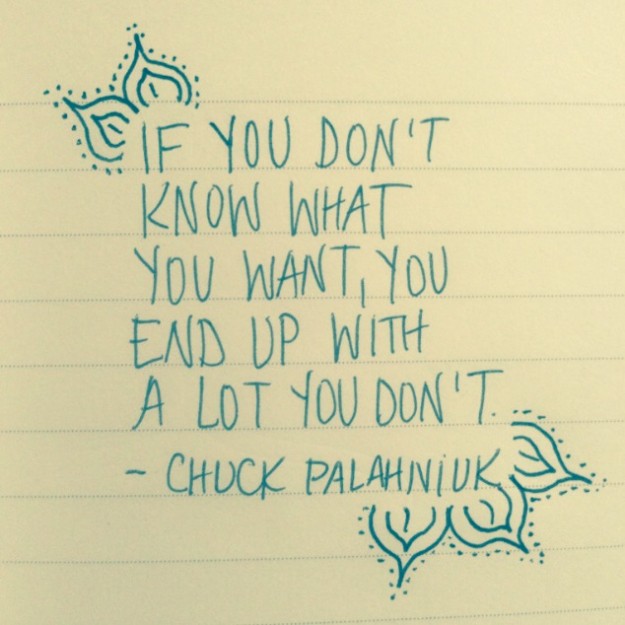 IF YOU DON'T
KNOW WHAT
YOU WANT, YOU
END UP WITH
A LOT YOU DON'T.
- CHUCK PALAHNIUK